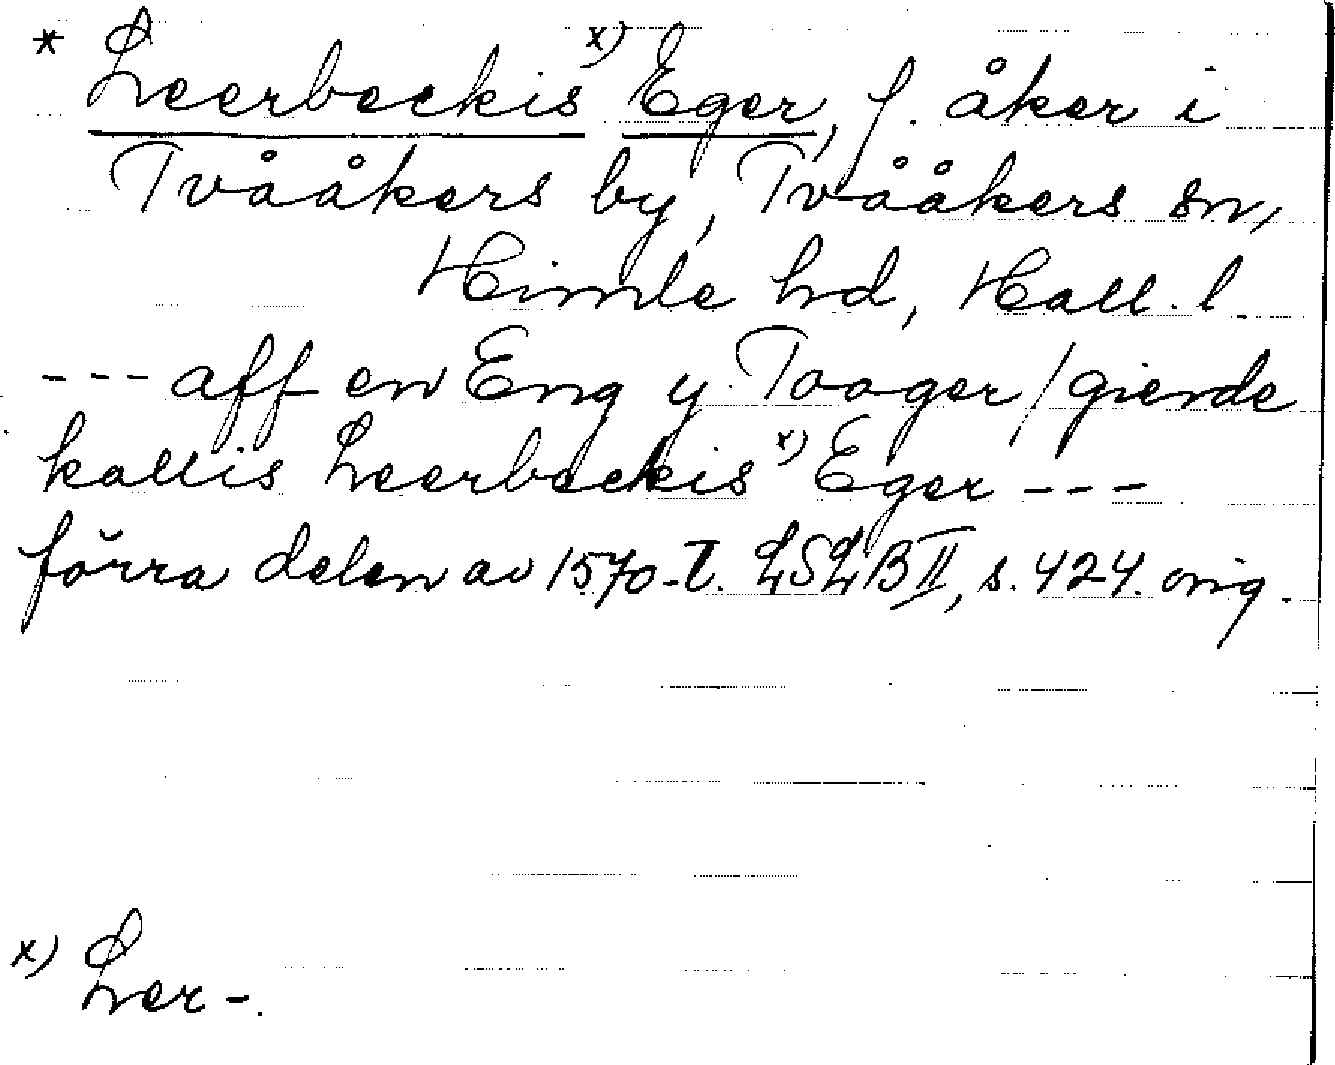 * Leerbeckis x) Eger, f. åker i
Tvååkers by, Tvååkers sn,
Himle hd, Hall. l.
--- aff en Eng y Toager / gierde
kallis Leerbeckis x) Eger ---
förra delen av 1570-t. LSLB II, s. 424. orig.
x) Ler-.